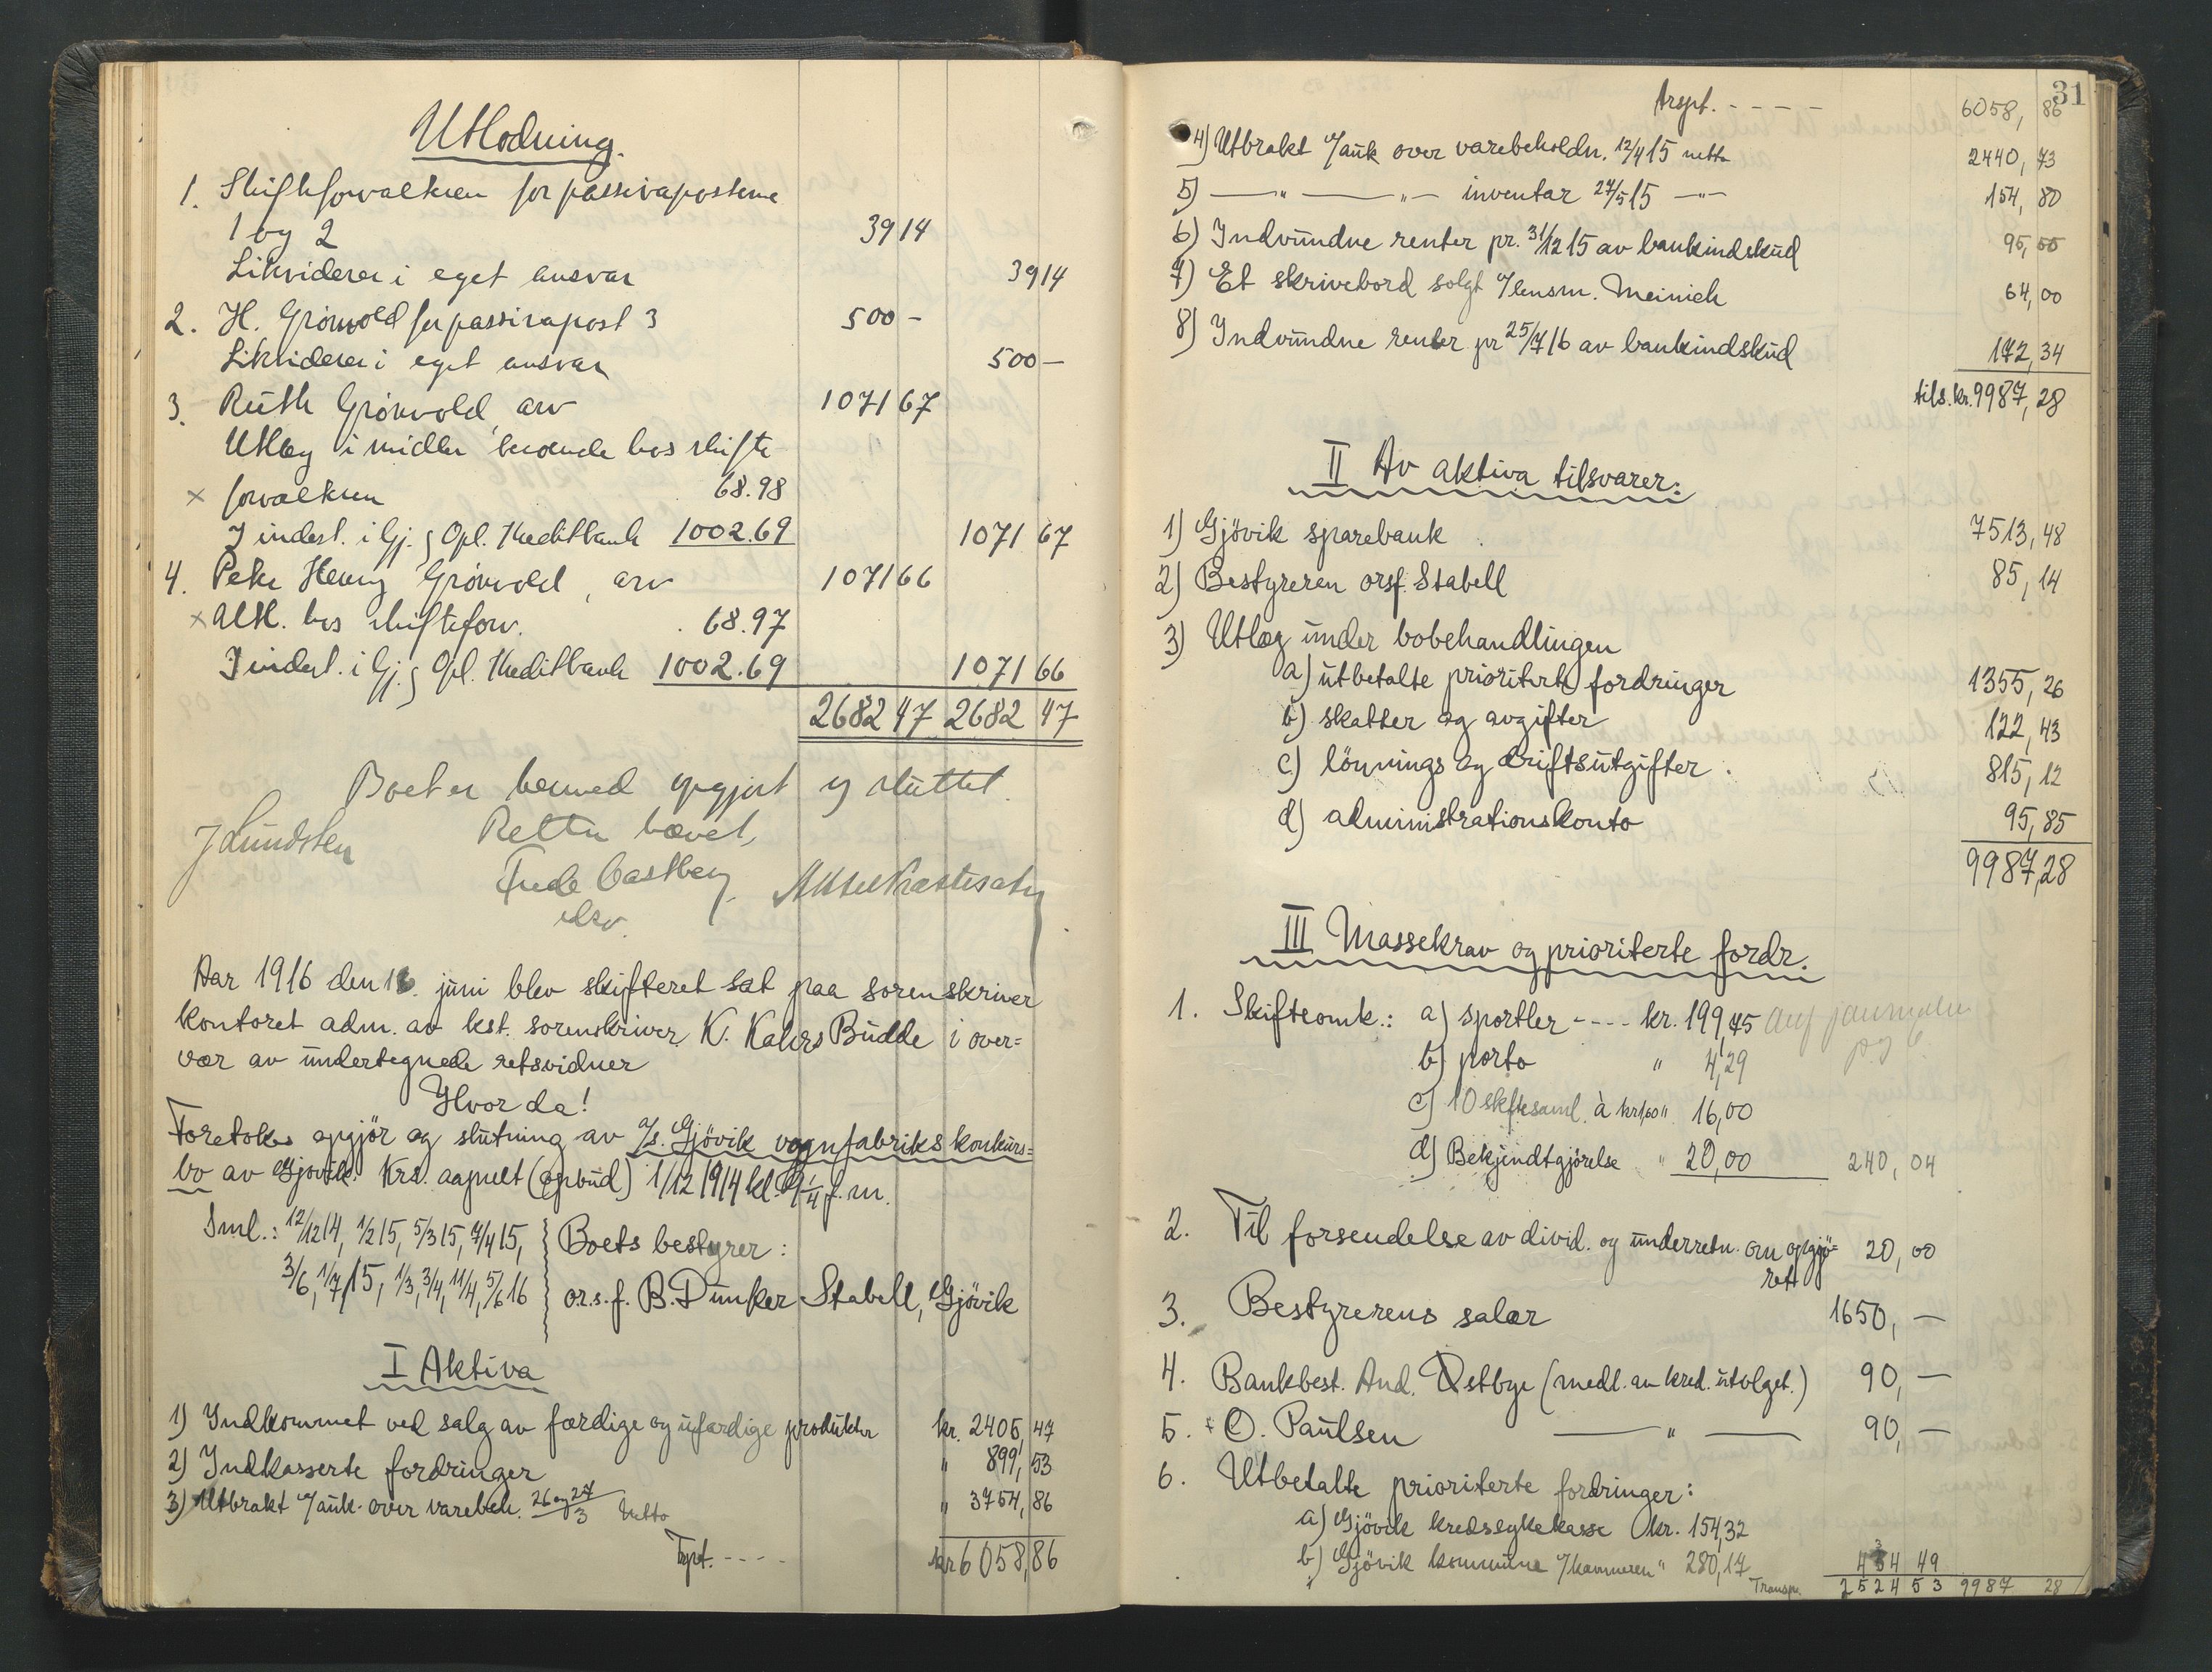 Utlodning.
1. Skifteforvalteren for passivaposterne
1 og 2 39 14
Likviderer i eget ansvar 39 14
2. H. Grönvold for passivapost 3 500 –
Likviderer i eget ansvar 500 –
3. Ruth Grönvold, arv 1071 67
Utlæg i midler beroende hos skifte-
x forvalteren 68.98
I indest. i Gj. & Opl. Kreditbank 1002.69 1071 67
4. Peter Henry Grönvold, arv 1071 66
x Utl. hos skifteforv. 68.97
I indest. i Gj. & Opl. Kreditbank 1002.69 1071 66
2682 47 2682 47
Boet er hermed opgjort og sluttet.
Retten hævet,
J Lundsten
Frede Castberg
Aar 1916 den 16. juni blev skifteret sat paa sorenskriver
kontoret adm. av kst. sorenskriver K. Kahrs Budde i over=
vær av undertegnede retsvidner
Hvor da!
Foretokes opgjör og slutning av A/S. Gjövik vognfabriks konkurs=
bo av Gjövik. Krd. aapnet (opbud) 1/12 1914 kl. 9 1/4 f.m.
Sml.: 12/12 14, 1/2 15, 5/3 15, 7/4 15,
3/6, 1/7 15, 1/3, 3/4, 11/4, 5/6 16
Boets bestyrer:
o.r.s.f. B. Dunker Stabell, Gjövik
I Aktiva
1) Indkommet ved salg av færdige og ufærdige produkter kr. 2405, 47
2) Indkasserte fordringer " 899, 53
3) Utbrakt v/auk. over varebeh. 26 og 27/3 Netto " 3754, 86
Trpt. - - - - kr 6058, 86
31
Trspt. - - - - - 6058, 86
4) Utbrakt v/auk over varebeholdn. 12/4 15 netto 2440, 73
5) — " — " — inventar 27/5 15 — " — 154, 80
6) Indvundne renter pr. 31/12 15 av bankindskud 95, 55
7) Et skrivebord solgt v/lensm. Meinich 64, 00
8) Indvundne renter pr 25/7 16 av bankindskud 172, 34
tils. kr. 9987, 28
II Av aktiva tilsvarer:
1) Gjövik sparebank 7513, 48
2) Bestyreren orsf. Stabell 85, 14
3) Utlæg under bobehandlingen
a) utbetalte prioriterte fordringer 1355, 26
b) skatter og avgifter 122, 43
c) lönnings og driftsutgifter 815, 12
d) administrationskonto 95, 85
9987, 28
III Massekrav og prioriterte fordr.
1. Skifteomk.: a) sportler - - - - kr. 199,75
b) porto " 4,29
c) 10 skiftesaml. à kr 1,60 " 16,00
d) Bekjendtgjörelse " 20,00 240, 04
2. Til forsendelse av divid. og underretn. om opgjö= 20, 00
ret
3. Bestyrerens salær 1650, —
4. Bankbest. And. Østbye (medl. av kred. utvalget.) 90, —
5. O. Paulsen — " — 90, —
6. Utbetalte prioriterte fordringer:
a) Gjövik kredssykekasse kr. 154,32
b) Gjövik kommune v/kæmneren " 280,17 434 49
Transp. 2524 53 9987 28